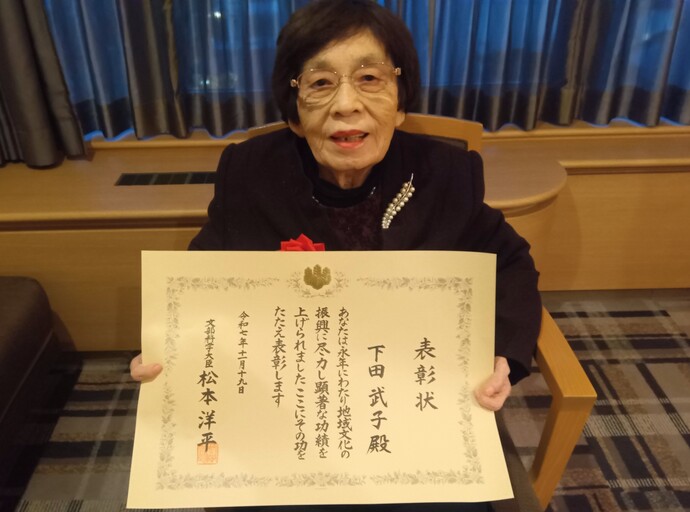 表彰状
下田武子殿
あなたは永年にわたり地域文化の
振興に尽力し顕著な功績を
上げられましたここにその功を
たたえ表彰します
令和七年十一月十九日
文部科学大臣 松本洋平